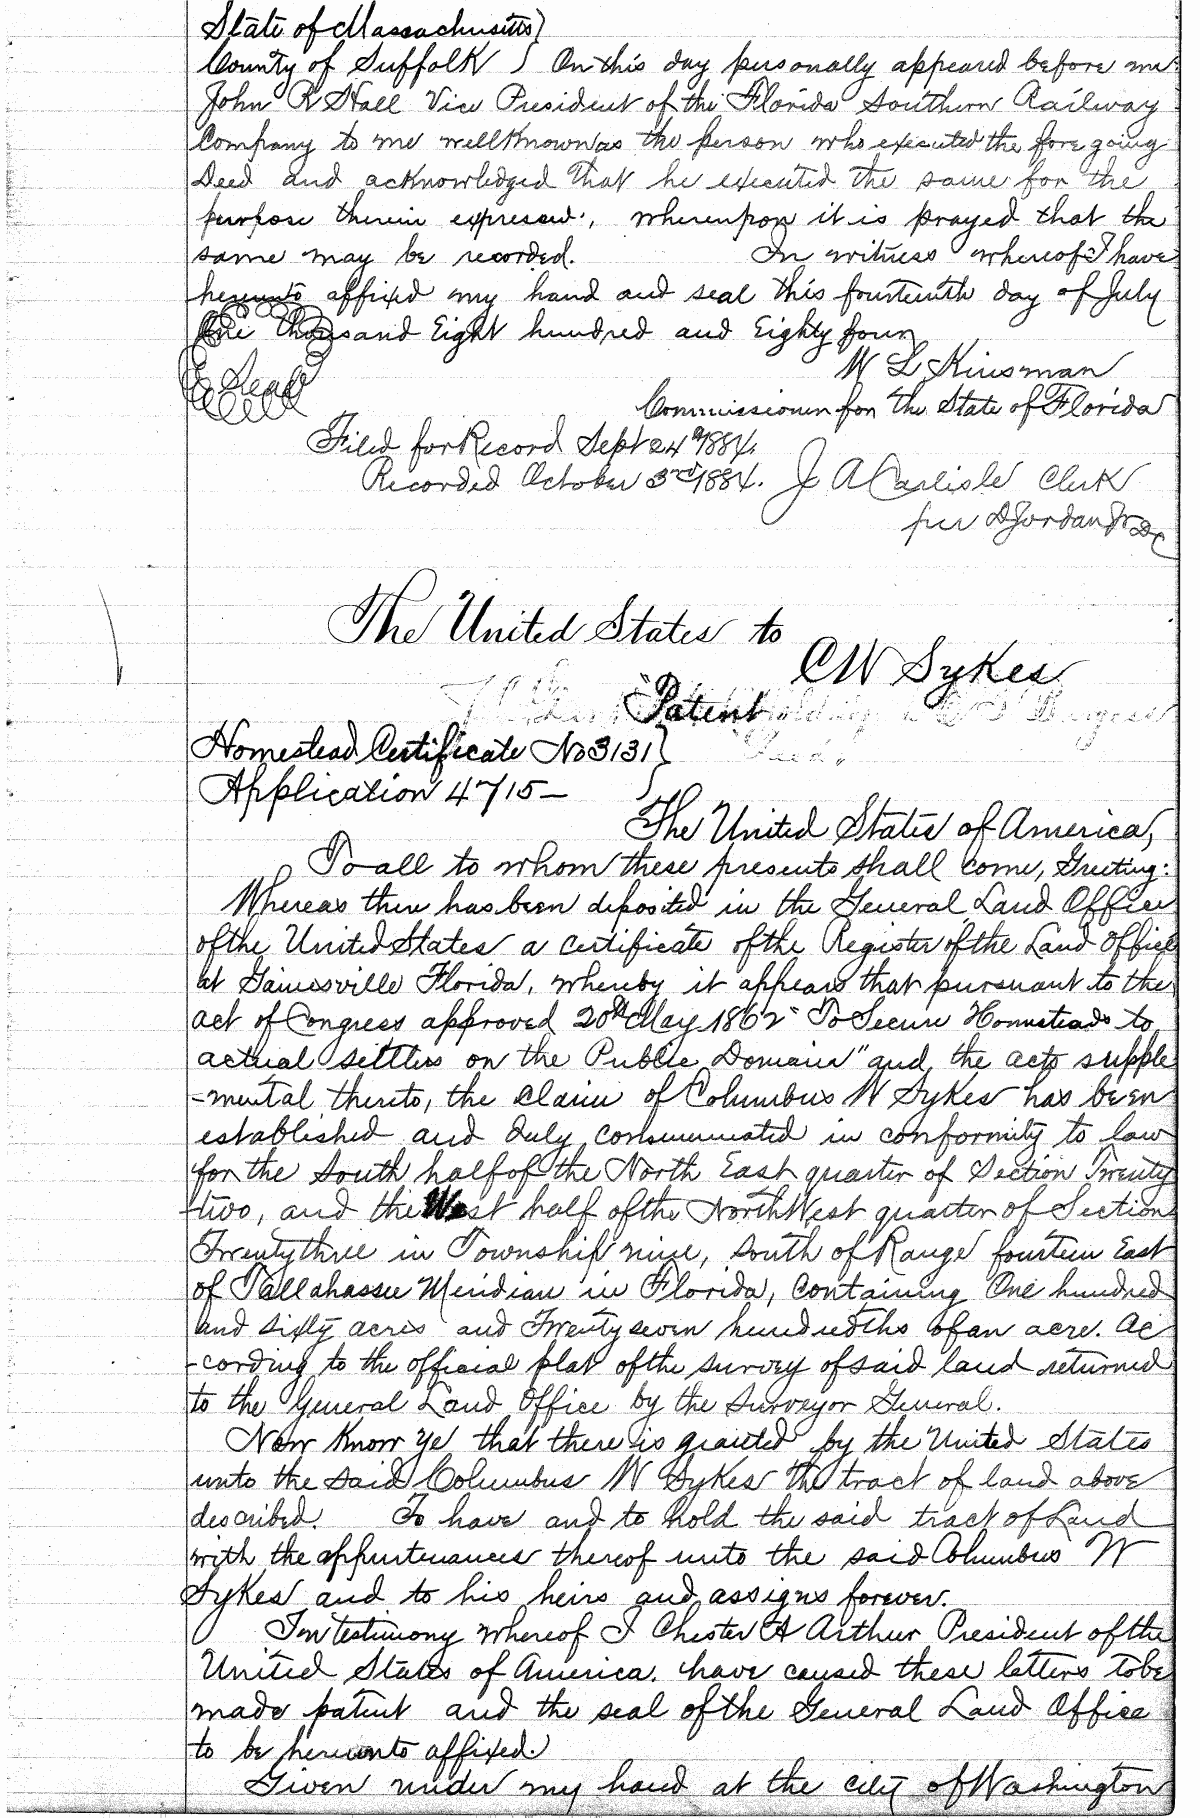 State of Massachusetts)
County of Suffolk ) On this day personally appeared before me
John R Hall Vice President of the Florida Southern Railway
Company to me well Known as the person who executed the foregoing
Deed and acknowledged that he executed the same for the
purpose therein expressed, whereupon it is prayed that the
same may be recorded. In witness whereof I have
hereunto affixed my hand and seal this fourteenth day of July
One thousand Eight hundred and Eighty four
W L Kinsman
Seal
Commissioner for the State of Florida
Filed for Record Sept 24th 1884.
Recorded October 3rd 1884. J A Carlisle Clerk
per D Jordan Jr DC
The United States to
C W Sykes
"Patent
Deed,
Homestead Certificate No 3131 }
Application 4715 —
The United States of America,
To all to whom these presents shall come, Greeting:
Whereas there has been deposited in the General Land Office
of the United States a certificate of the Register of the Land Office
at Gainesville Florida, whereby it appears that pursuant to the
act of Congress approved 20th May 1862 "To Secure Homesteads to
actual settlers on the Public Domain" and the acts supple
-mental thereto, the claim of Columbus W Sykes has been
established and duly consummated in conformity to law
for the South half of the North East quarter of Section Twenty
two, and the West half of the North West quarter of Section
Twenty three in Township nine, South of Range fourteen East
of Tallahassee Meridian in Florida, containing One hundred
and sixty acres and Twenty seven hundredths of an acre. Ac
-cording to the official plat of the survey of said land returned
to the General Land Office by the Surveyor General.
Now Know Ye that there is granted by the United States
unto the said Columbus W Sykes the tract of land above
described. To have and to hold the said tract of Land
with the appurtenances thereof unto the said Columbus W
Sykes and to his heirs and assigns forever.
In testimony whereof I Chester A Arthur President of the
United States of America. have caused these letters to be
made patent and the seal of the General Land Office
to be hereunto affixed.
Given under my hand at the city of Washington